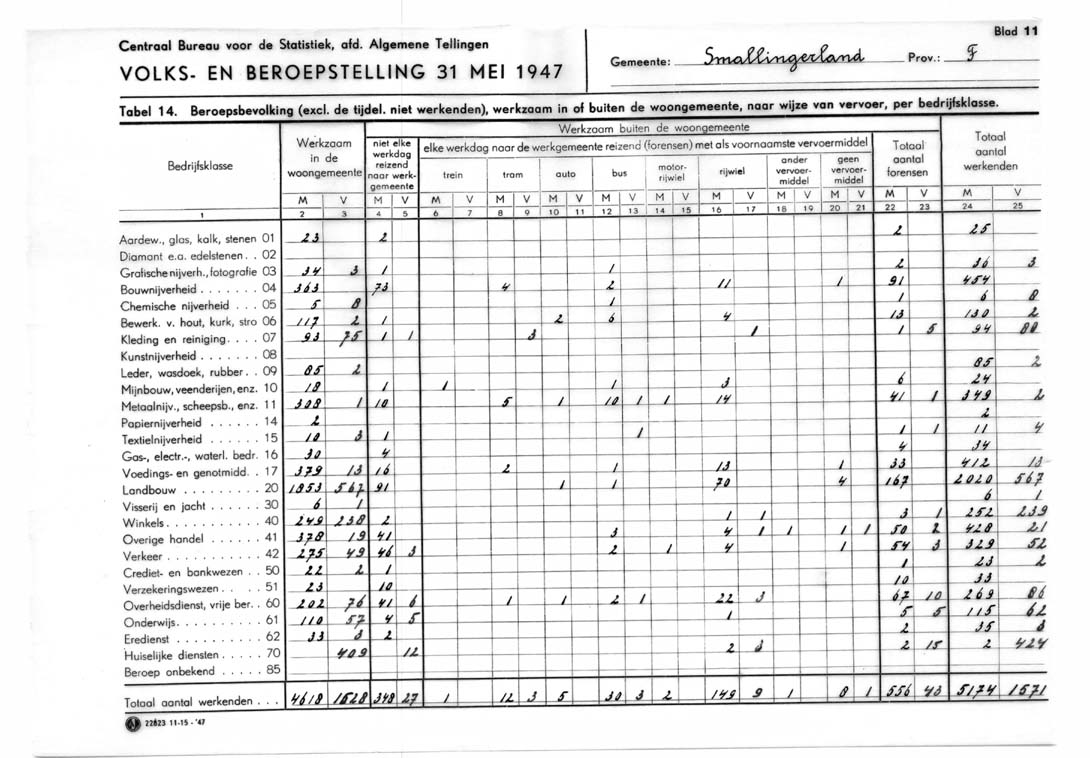 Blad 11
Centraal Bureau voor de Statistiek, afd. Algemene Tellingen
VOLKS- EN BEROEPSTELLING 31 MEI 1947
Gemeente: Smallingerland Prov.: F
Tabel 14. Beroepsbevolking (excl. de tijdel. niet werkenden), werkzaam in of buiten de woongemeente, naar wijze van vervoer, per bedrijfsklasse.
Bedrijfsklasse
Werkzaam in de woongemeente
Werkzaam buiten de woongemeente
niet elke werkdag reizend naar werkgemeente
elke werkdag naar de werkgemeente reizend (forensen) met als voornaamste vervoermiddel
trein tram auto bus motor-rijwiel rijwiel ander vervoer-middel geen vervoer-middel
Totaal aantal forensen
Totaal aantal werkenden
M V M V M V M V M V M V M V M V M V M V M V M V
1 2 3 4 5 6 7 8 9 10 11 12 13 14 15 16 17 18 19 20 21 22 23 24 25
Aardew., glas, kalk, stenen 01 23 2 2 25
Diamant e.a. edelstenen . . 02
Grafische nijverh., fotografie 03 34 3 1 1 2 36 3
Bouwnijverheid . . . . . . . 04 363 73 4 2 11 1 91 454
Chemische nijverheid . . . 05 5 8 1 1 6 8
Bewerk. v. hout, kurk, stro 06 117 2 1 2 6 4 13 130 2
Kleding en reiniging. . . . 07 93 75 1 1 3 1 1 5 94 80
Kunstnijverheid . . . . . . . 08
Leder, wasdoek, rubber. . 09 85 2 85 2
Mijnbouw, veenderijen, enz. 10 18 1 1 1 3 6 24
Metaalnijv., scheepsb., enz. 11 308 1 10 5 1 10 1 1 14 41 1 349 2
Papiernijverheid . . . . . . 14 2 2
Textielnijverheid . . . . . . 15 10 3 1 1 1 1 11 4
Gas-, electr.-, waterl. bedr. 16 30 4 4 34
Voedings- en genotmidd. . 17 379 13 16 2 1 13 1 33 412 13
Landbouw . . . . . . . . . 20 1853 567 91 1 1 70 4 167 2020 567
Visserij en jacht . . . . . . 30 6 1 6 1
Winkels . . . . . . . . . . . 40 249 238 2 1 1 3 1 252 239
Overige handel . . . . . . . 41 378 19 41 3 4 1 1 1 1 50 2 428 21
Verkeer . . . . . . . . . . . 42 275 49 46 3 2 1 4 1 54 3 329 52
Crediet- en bankwezen . . 50 22 2 1 1 23 2
Verzekeringswezen . . . . 51 23 10 10 33
Overheidsdienst, vrije ber. . 60 202 76 41 6 1 1 2 1 22 3 67 10 269 86
Onderwijs. . . . . . . . . . 61 110 57 4 5 1 5 5 115 62
Eredienst . . . . . . . . . . 62 33 3 2 2 35 3
Huiselijke diensten . . . . . 70 409 12 2 3 2 15 2 424
Beroep onbekend . . . . . 85
Totaal aantal werkenden . . . 4618 1528 348 27 1 12 3 5 30 3 2 149 9 1 8 1 556 43 5174 1571
22823 11-15 - '47